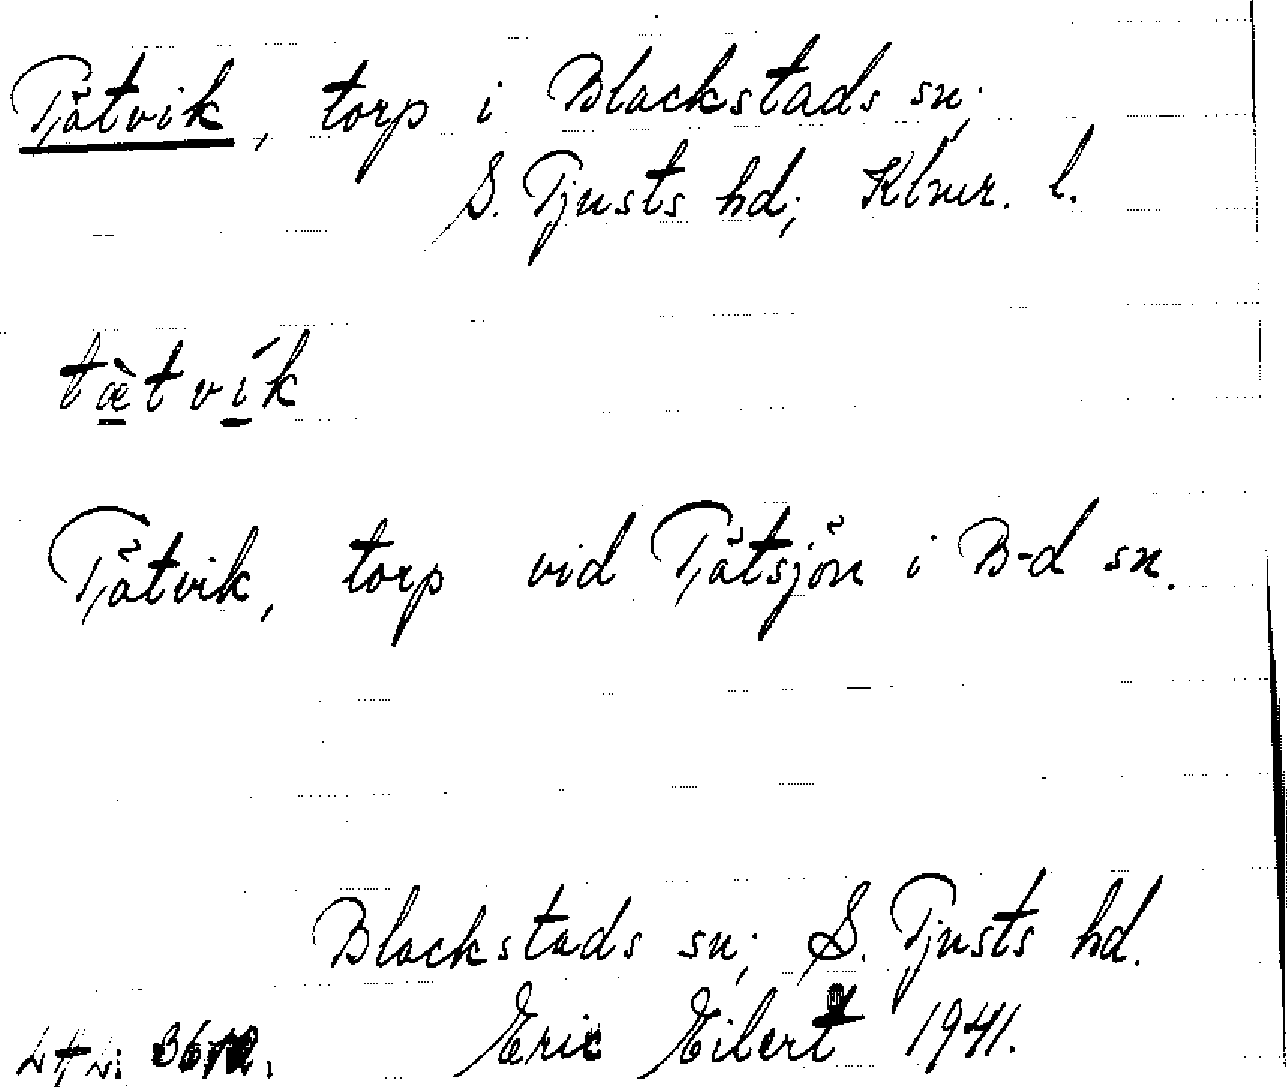 Tåtvik, torp i Blackstads sn;
S. Tjusts hd; Klmr. l.
tæ̀tvík
Tåtvik, torp vid Tåtsjön i B-d sn.
Blackstads sn; S. Tjusts hd.
Eric Eilert 1941.